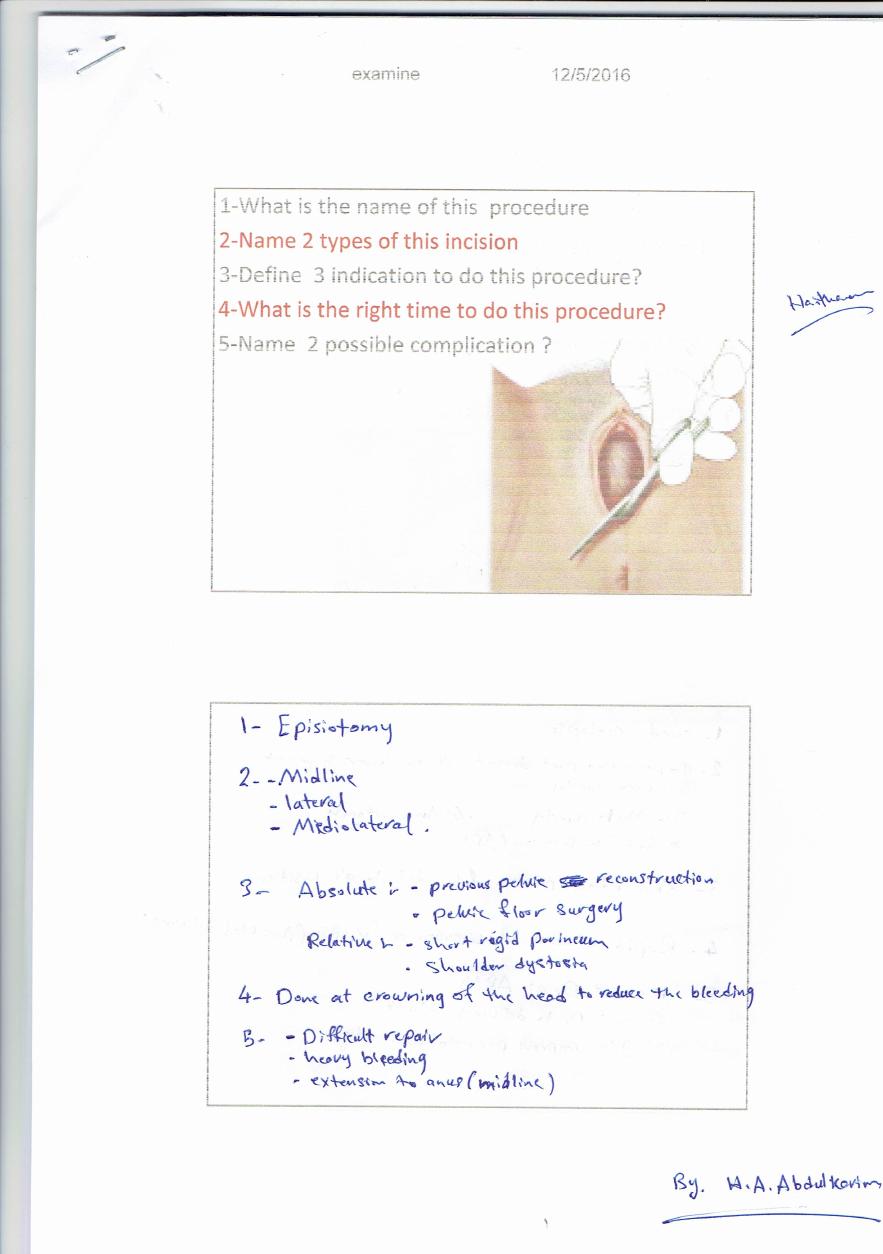 examine 12/5/2016
1-What is the name of this procedure
2-Name 2 types of this incision
3-Define 3 indication to do this procedure?
4-What is the right time to do this procedure?
5-Name 2 possible complication ?
Haitham
1- Episiotomy
2- - Midline
- lateral
- Mediolateral .
3- Absolute :- - previous pelvic reconstruction
- pelvic floor surgery
Relative :- - short rigid perineum
- Shoulder dystosia
4- Done at crowning of the head to reduce the bleeding
5- - Difficult repair
- heavy bleeding
- extension to anus (midline)
By. H.A.Abdulkarim